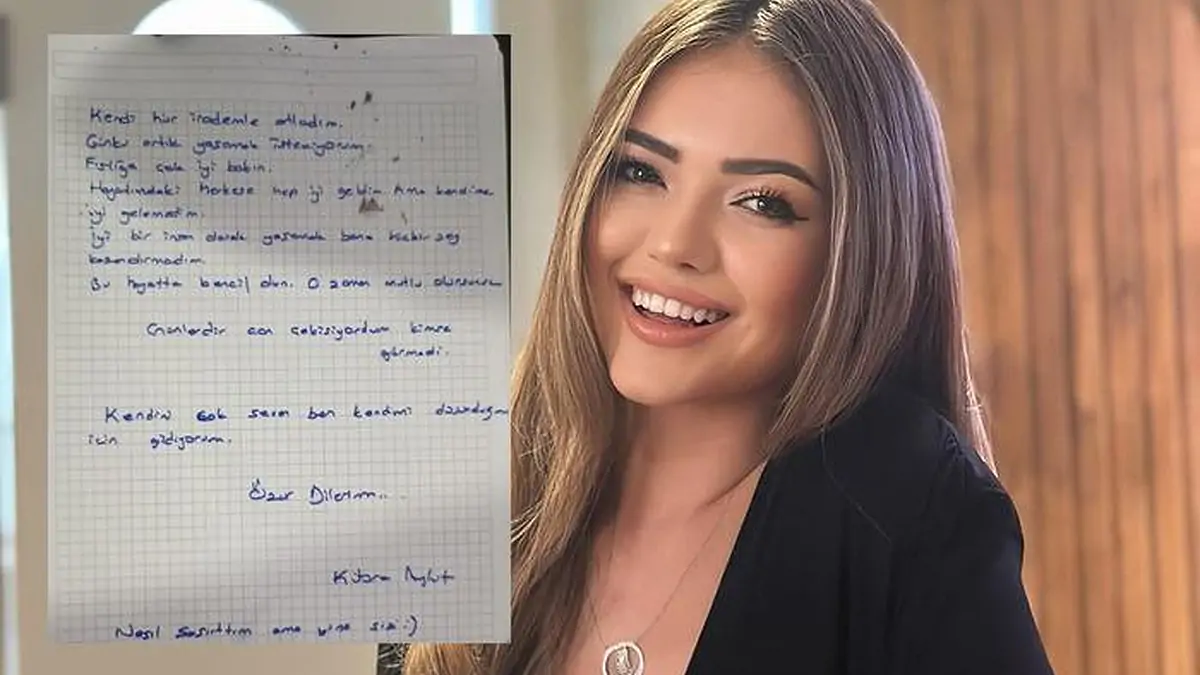 Kendi hür irademle atladım.
Çünkü artık yaşamak istemiyorum.
Fıstığa çok iyi bakın.
Hayatımdaki herkese hep iyi geldim Ama kendime
iyi gelemedim.
İyi bir insan olarak yaşamak bana hiçbir şey
kazandırmadım.
Bu hayatta bencil olun. O zaman mutlu olursunuz
can çekişiyordum kimse
görmedi.
Kendimi çok seven ben kendimi
için gidiyorum.
Özür Dilerim...
Kübra Aykut
Nasıl şaşırttım ama yine sizi :)